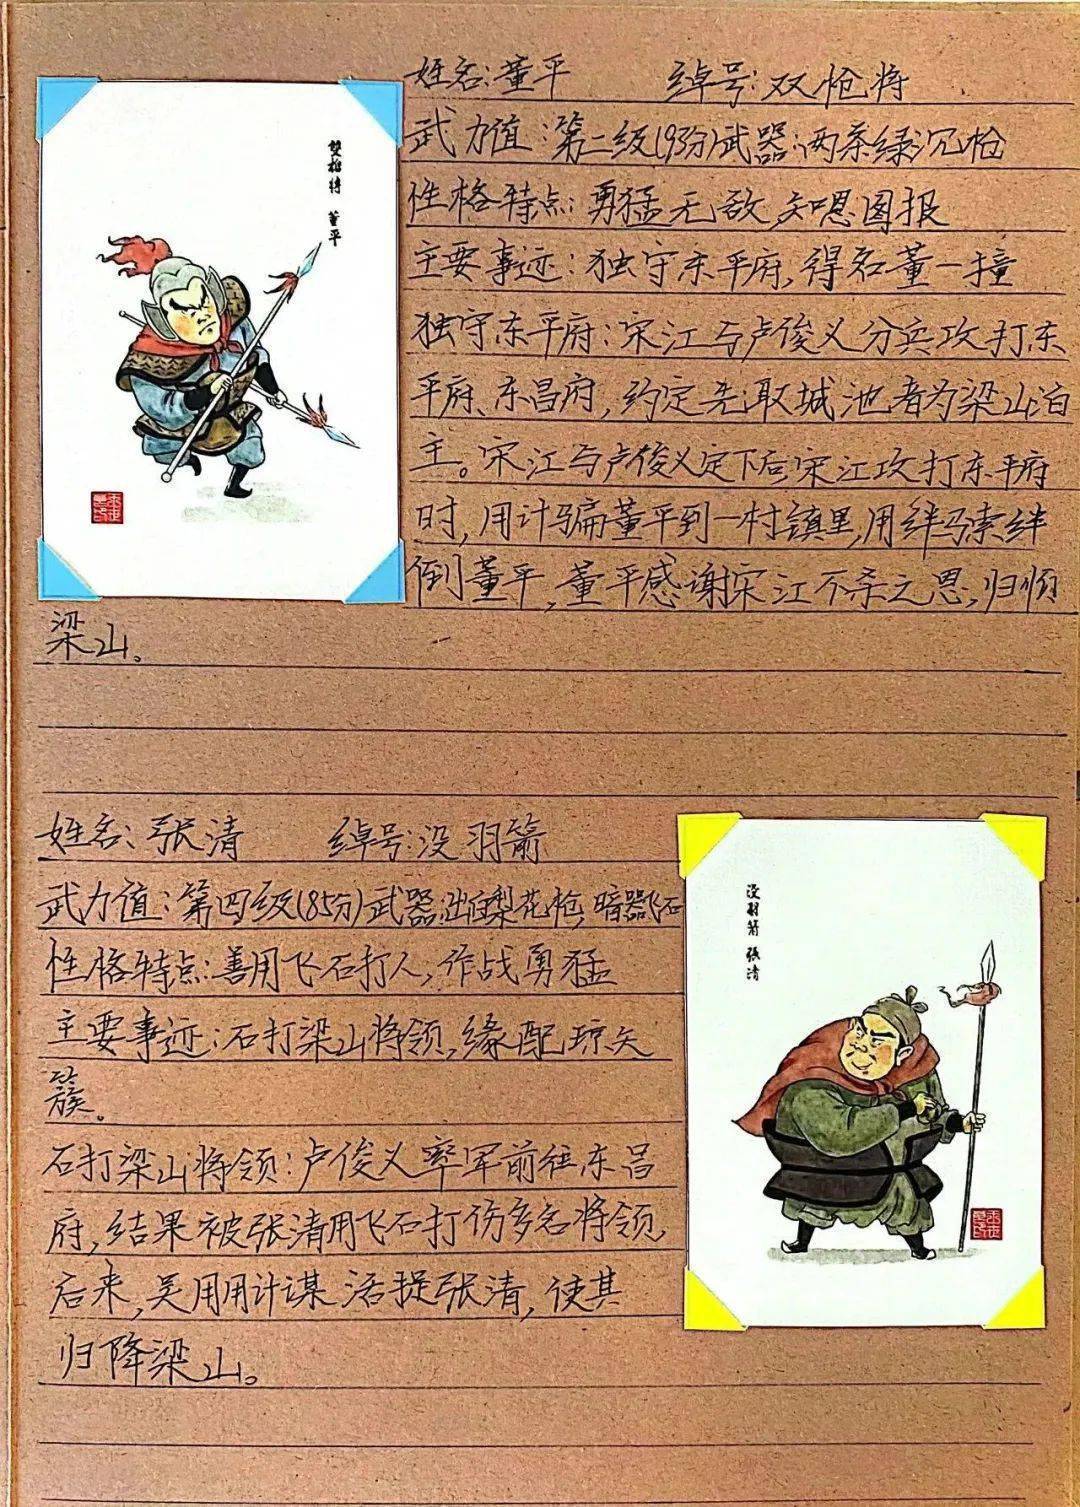 雙槍將 董平
姓名:董平 绰号:双枪将
武力值:第二级(93分)武器:两条绿沉枪
性格特点:勇猛无敌,知恩图报
主要事迹:独守东平府,得名董一撞
独守东平府:宋江与卢俊义分兵攻打东
平府、东昌府,约定先取城池者为梁山泊
主。宋江与卢俊义定下后宋江攻打东平府
时,用计骗董平到一村镇里,用绊马索绊
倒董平,董平感谢宋江不杀之恩,归顺
梁山。
姓名:张清 绰号:没羽箭
武力值:第四级(85分)武器:出白梨花枪,暗器飞石
性格特点:善用飞石打人,作战勇猛
主要事迹:石打梁山将领,缘配琼矢
簇。
石打梁山将领:卢俊义率军前往东昌
府,结果被张清用飞石打伤多名将领,
后来,吴用用计谋活捉张清,使其
归降梁山。
没羽箭 張清